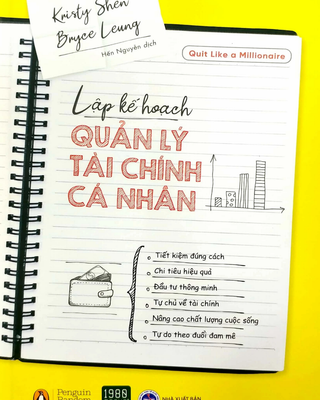 Kristy Shen
Bryce Leung
Hến Nguyên dịch
Quit Like a Millionaire
Lập kế hoạch
QUẢN LÝ
TÀI CHÍNH
CÁ NHÂN
Tiết kiệm đúng cách
Chi tiêu hiệu quả
Đầu tư thông minh
Tự chủ về tài chính
Nâng cao chất lượng cuộc sống
Tự do theo đuổi đam mê
Penguin
Random
1980
NHÀ XUẤT BẢN